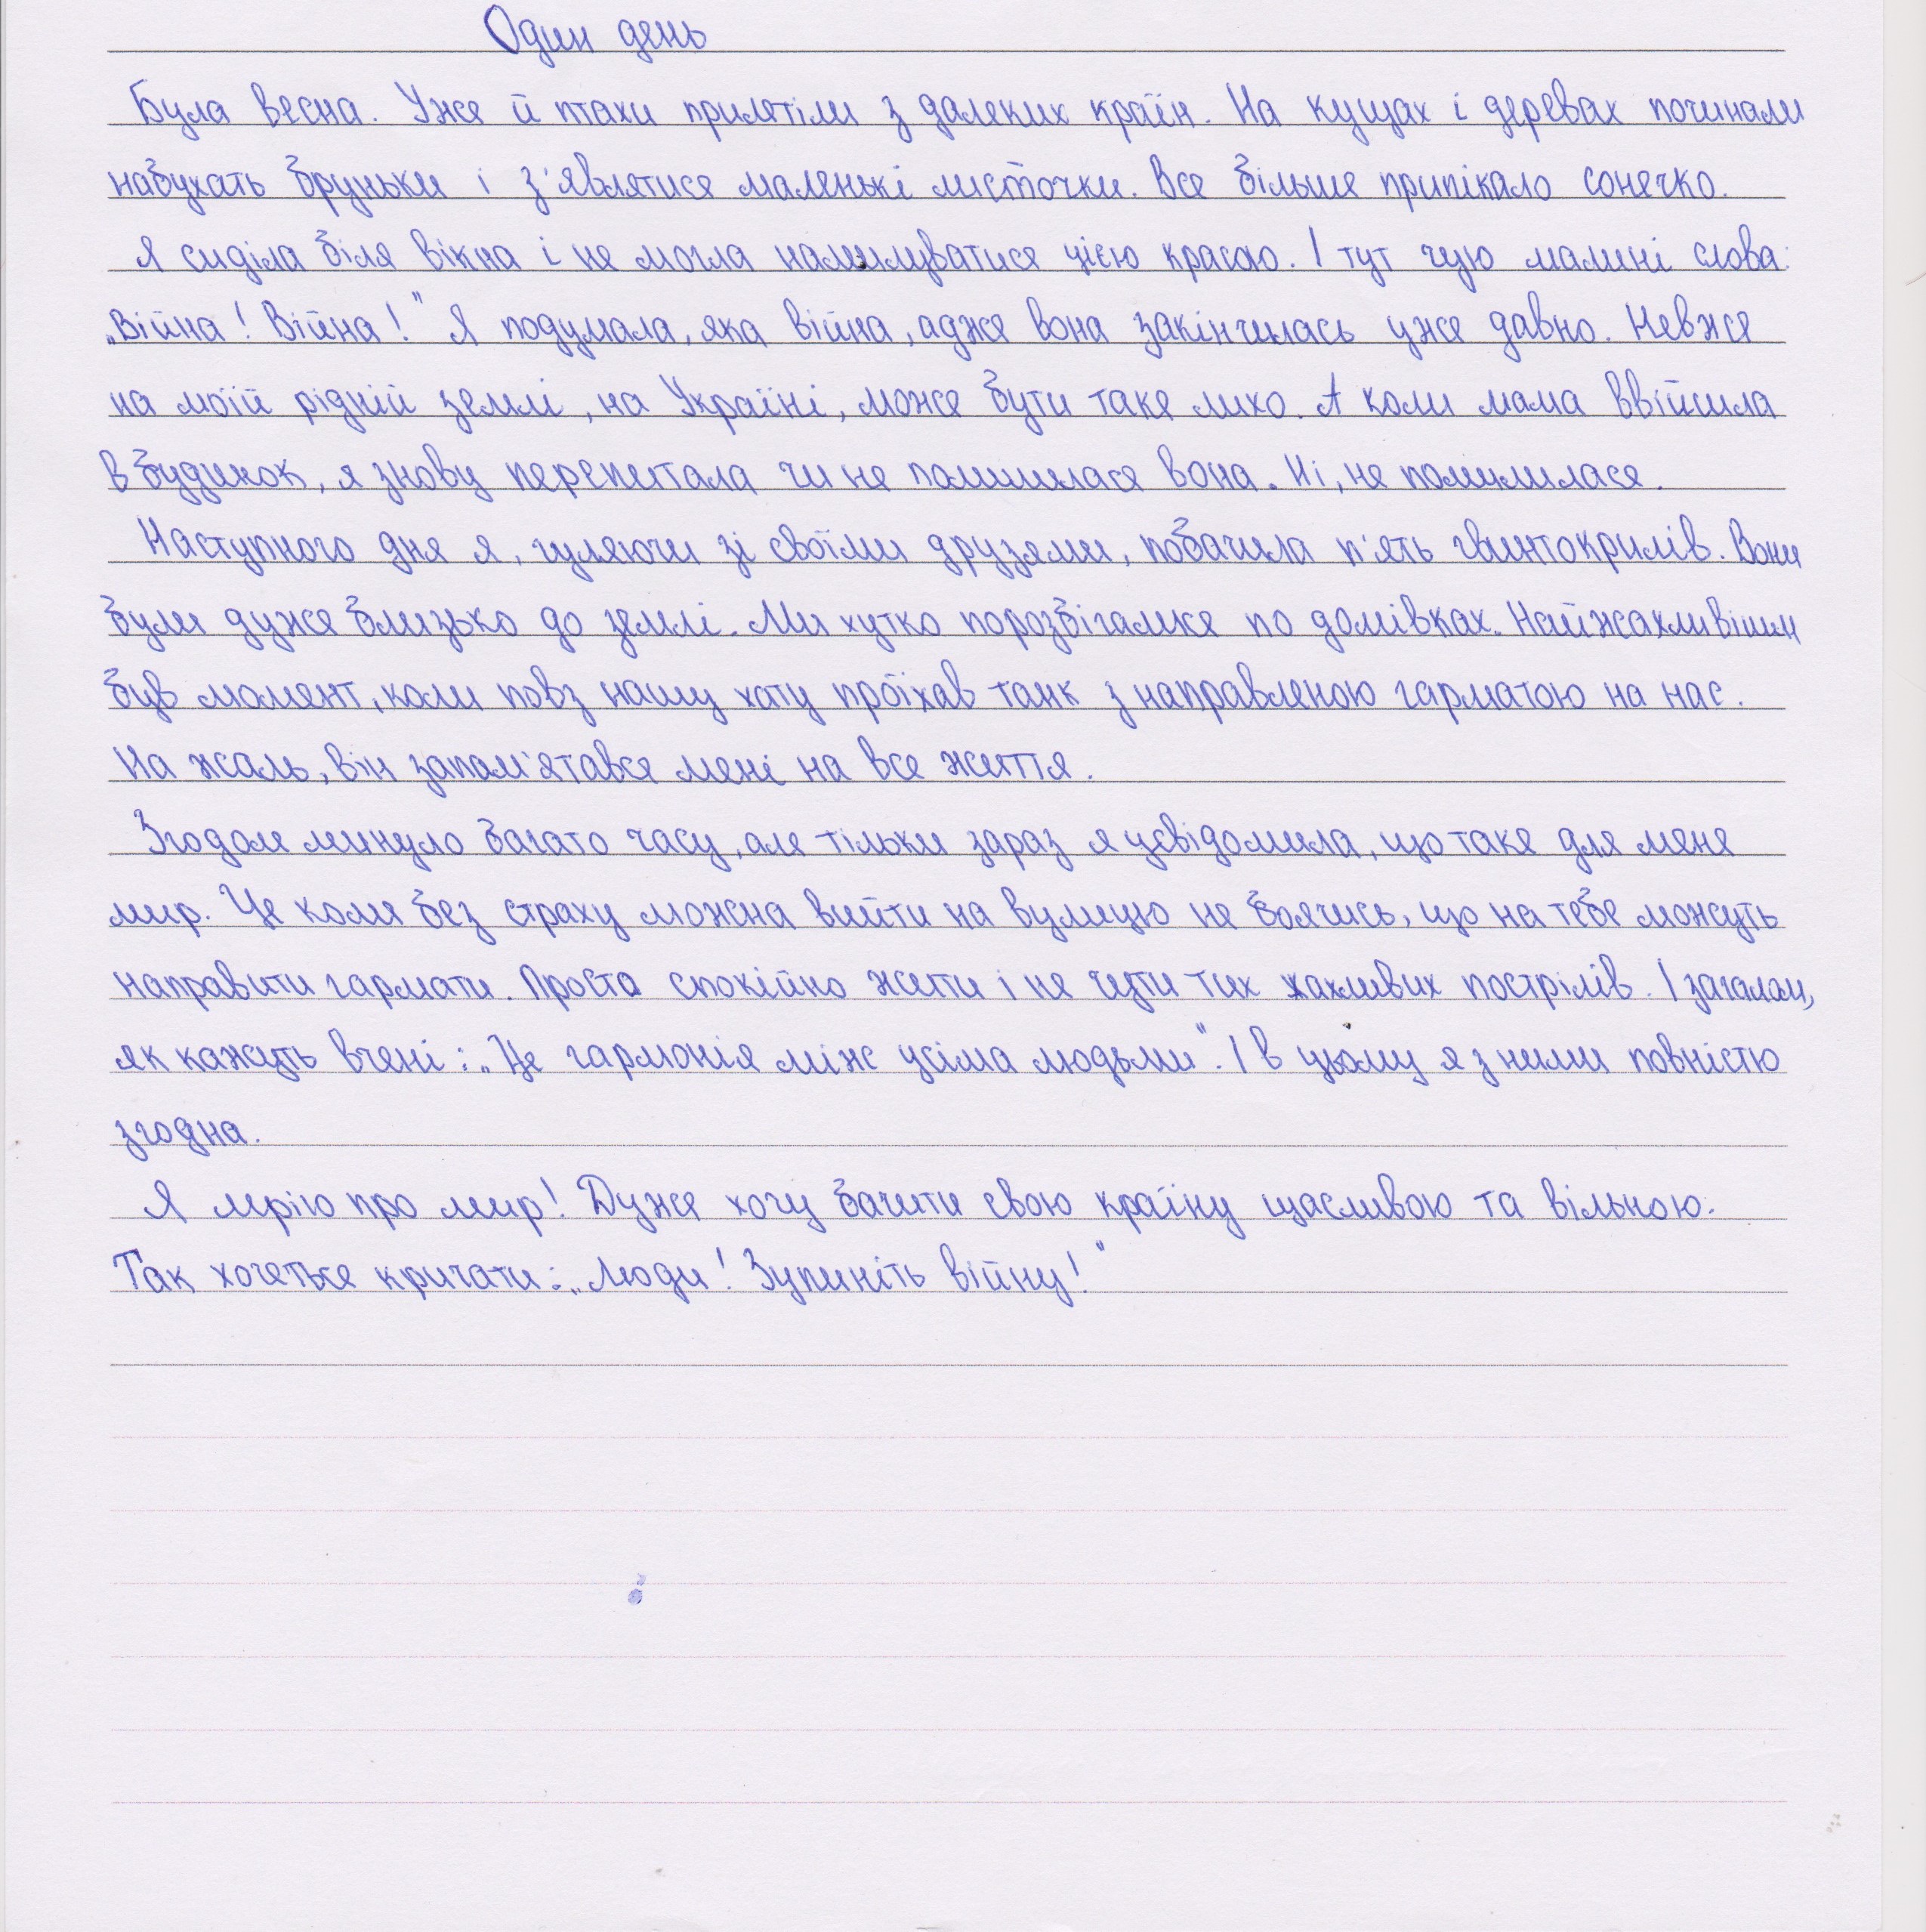 Один день
Була весна. Уже й птахи прилетіли з далеких країн. На кущах і деревах починали
набухать бруньки і з'являтися маленькі листочки. Все більше припікало сонечко.
Я сиділа біля вікна і не могла намилуватися цією красою. І тут чую мамині слова:
„Війна! Війна!" Я подумала, яка війна, адже вона закінчилась уже давно. Невже
на моїй рідній землі, на Україні, може бути таке лихо. А коли мама ввійшла
в будинок, я знову перепитала чи не помилилася вона. Ні, не помилилася.
Наступного дня я, гуляючи зі своїми друзями, побачила п'ять гвинтокрилів. Вони
були дуже близько до землі. Ми хутко порозбігалися по домівках. Найжахливішим
був момент, коли повз нашу хату проїхав танк з направленою гарматою на нас.
На жаль, він запам'ятався мені на все життя.
Згодом минуло багато часу, але тільки зараз я усвідомила, що таке для мене
мир. Це коли без страху можна вийти на вулицю не боячись, що на тебе можуть
направити гармати. Просто спокійно жити і не чути тих жахливих пострілів. І загалом,
як кажуть вчені: „Це гармонія між усіма людьми". І в цьому я з ними повністю
згодна.
Я мрію про мир! Дуже хочу бачити свою країну щасливою та вільною.
Так хочеться кричати: „Люди! Зупиніть війну!"